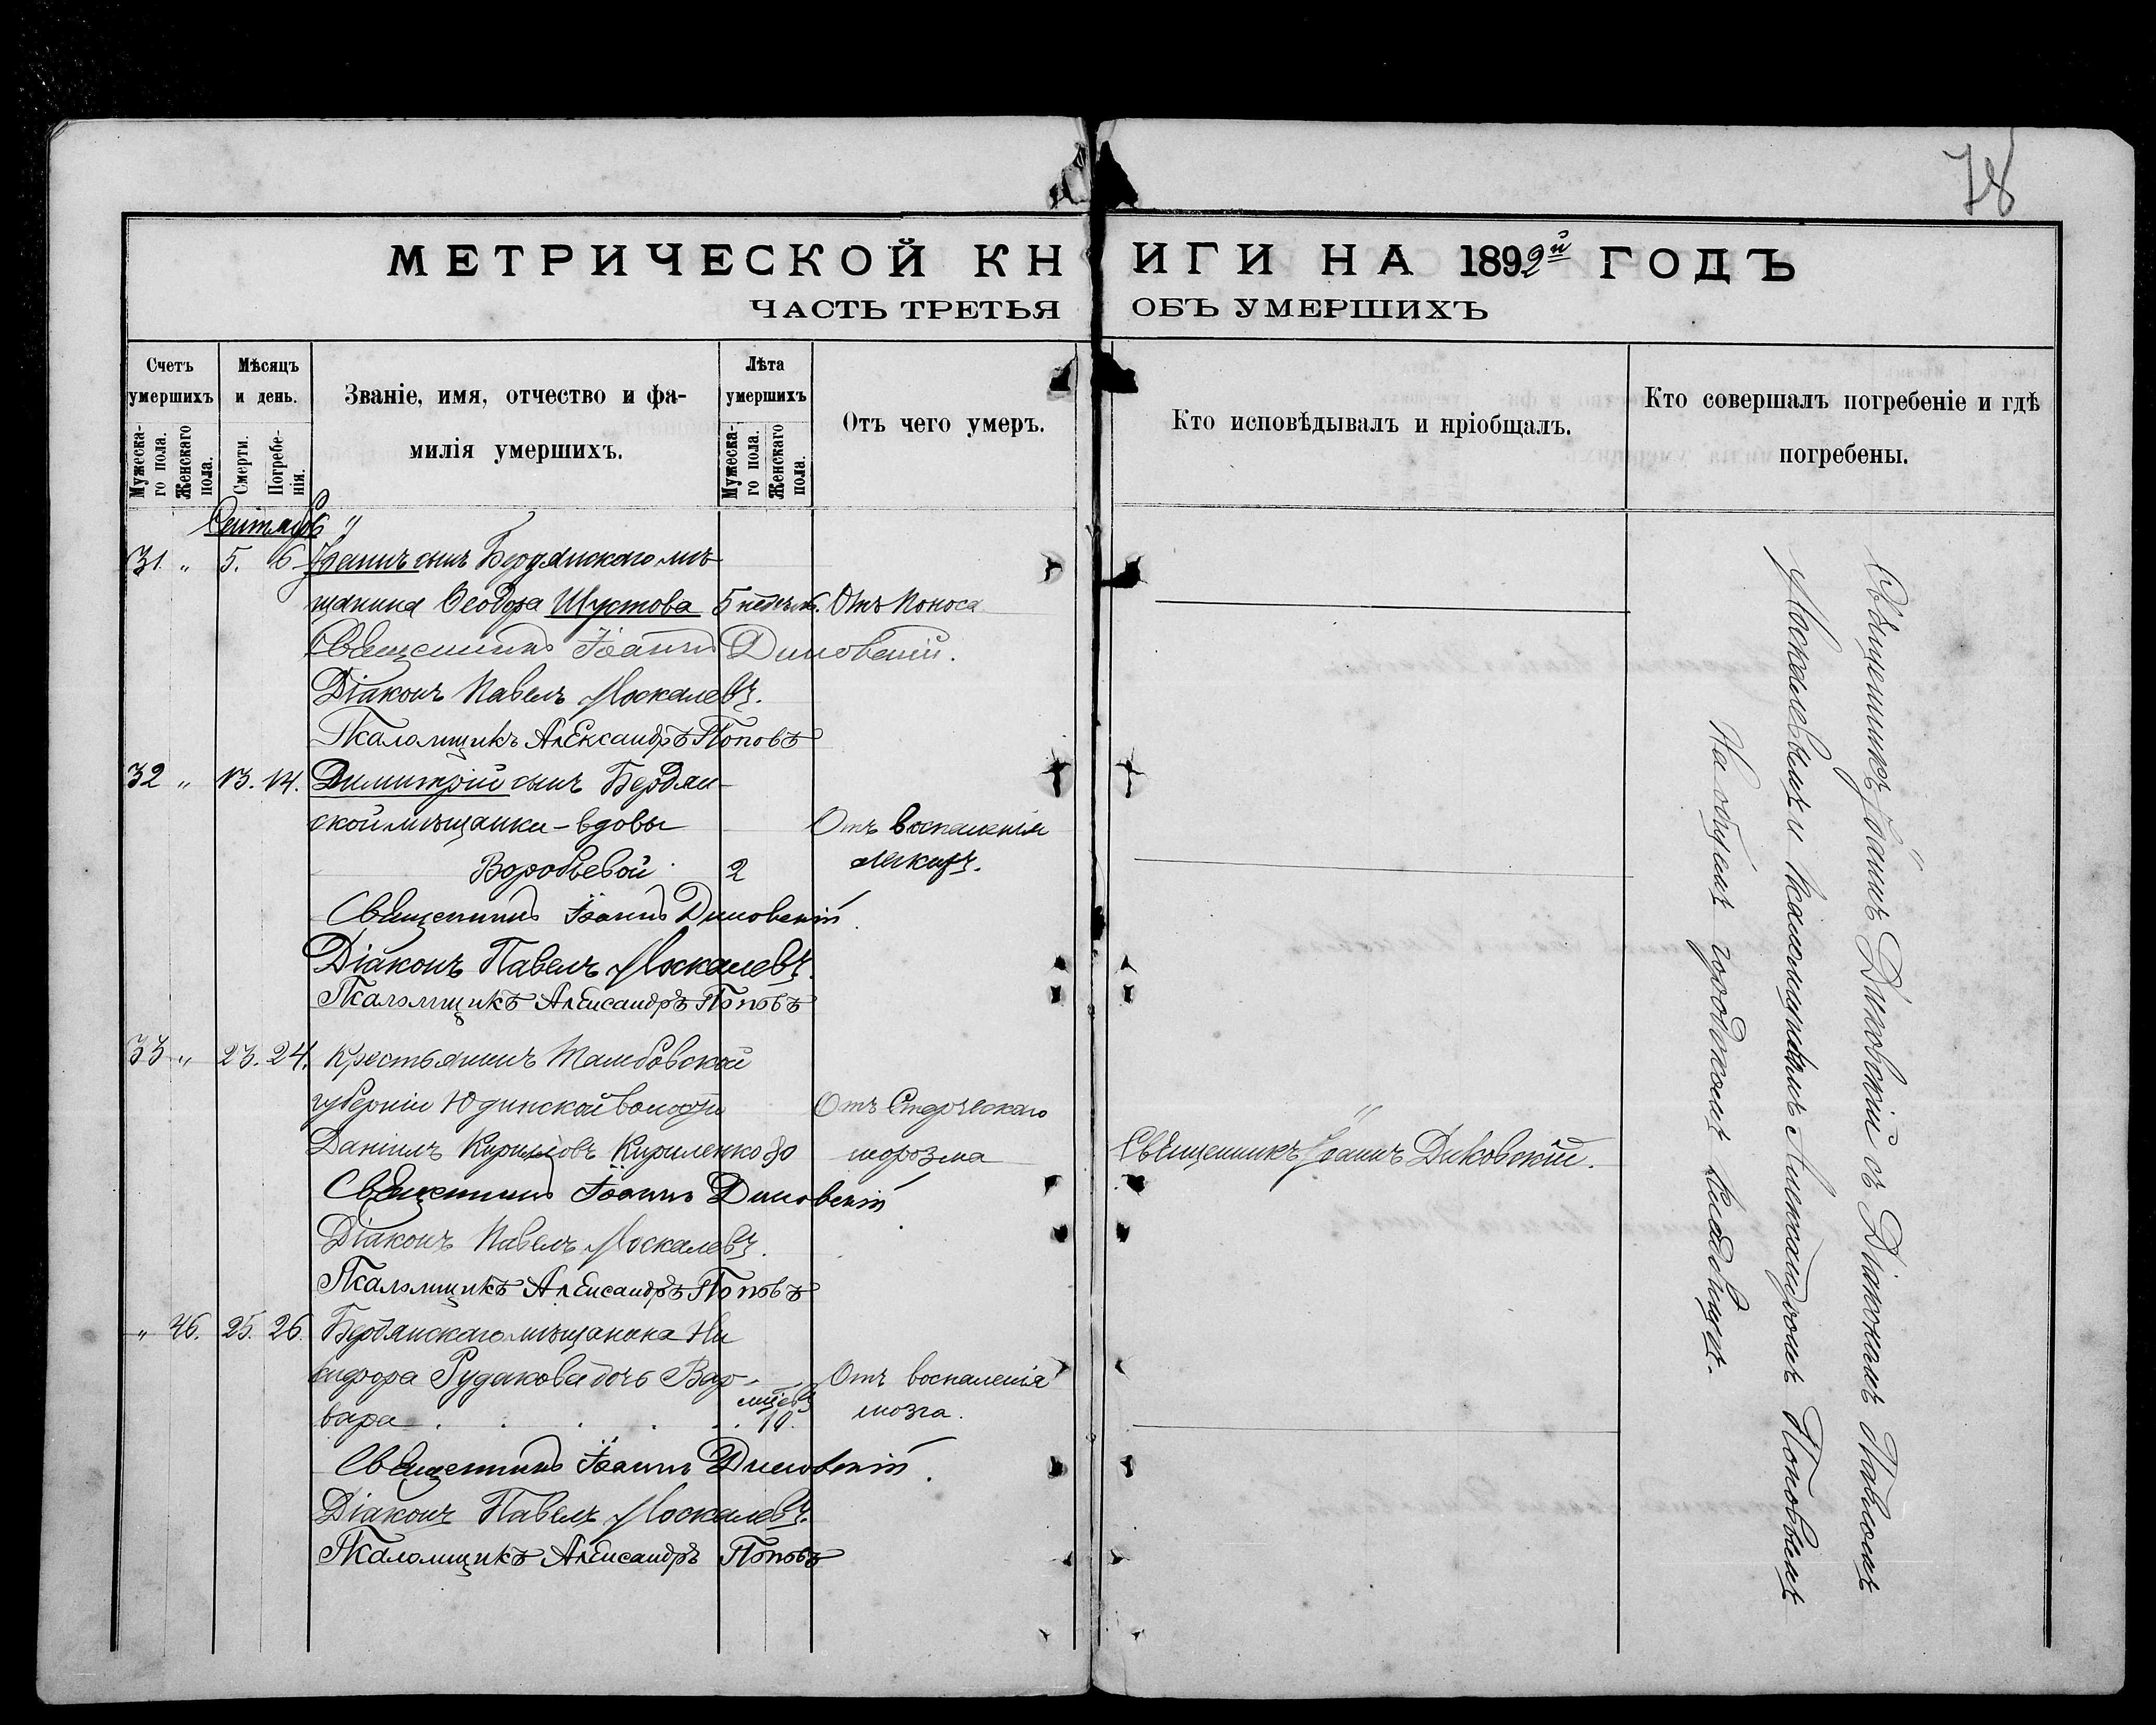 78
МЕТРИЧЕСКОЙ КНИГИ НА 1892й ГОДЪ
ЧАСТЬ ТРЕТЬЯ ОБЪ УМЕРШИХЪ
Счетъ умершихъ
Мужеска-го пола.
Женскаго пола.
Мѣсяцъ и день.
Смерти.
Погребе-нія.
Званіе, имя, отчество и фа-
милія умершихъ.
Лѣта умершихъ
Мужеска-го пола.
Женскаго пола.
Отъ чего умеръ.
Кто исповѣдывалъ и пріобщалъ.
Кто совершалъ погребеніе и гдѣ
погребены.
Сентябрь
31 " 5. 6 Іоаннъ сынъ Бердянскаго мѣ-
щанина Ѳеодора Шустова 5 недѣль. Отъ Поноса
Священникъ Іоаннъ Диковскій.
Діаконъ Павелъ Москалевъ.
Псаломщикъ Александръ Поповъ
32 " 13. 14. Димитрій сынъ Бердян-
ской мѣщанки - вдовы Отъ воспаленія
Воробьевой 2 легкихъ.
Священникъ Іоаннъ Диковскій
Діаконъ Павелъ Москалевъ.
Псаломщикъ Александръ Поповъ
33 " 23. 24. Крестьянинъ Тамбовской
губерніи Юдинской волости Отъ Старческаго
Даніилъ Кириловъ Кириленко 80 морозма Священникъ Іоаннъ Диковскій.
Священникъ Іоаннъ Диковскій
Діаконъ Павелъ Москалевъ.
Псаломщикъ Александръ Поповъ
" 46. 25. 26. Бердянскаго мѣщанина Ни
кифора Рудакова дочь Вар- Отъ воспаленія
вара . . . . . мѣсяцевъ 10. мозга.
Священникъ Іоаннъ Диковскій.
Діаконъ Павелъ Москалевъ.
Псаломщикъ Александръ Поповъ
Священникъ Іоаннъ Диковскій съ Діакономъ Павломъ
Москалевымъ и Псаломщикомъ Александромъ Поповымъ
На общемъ городскомъ кладбищѣ.